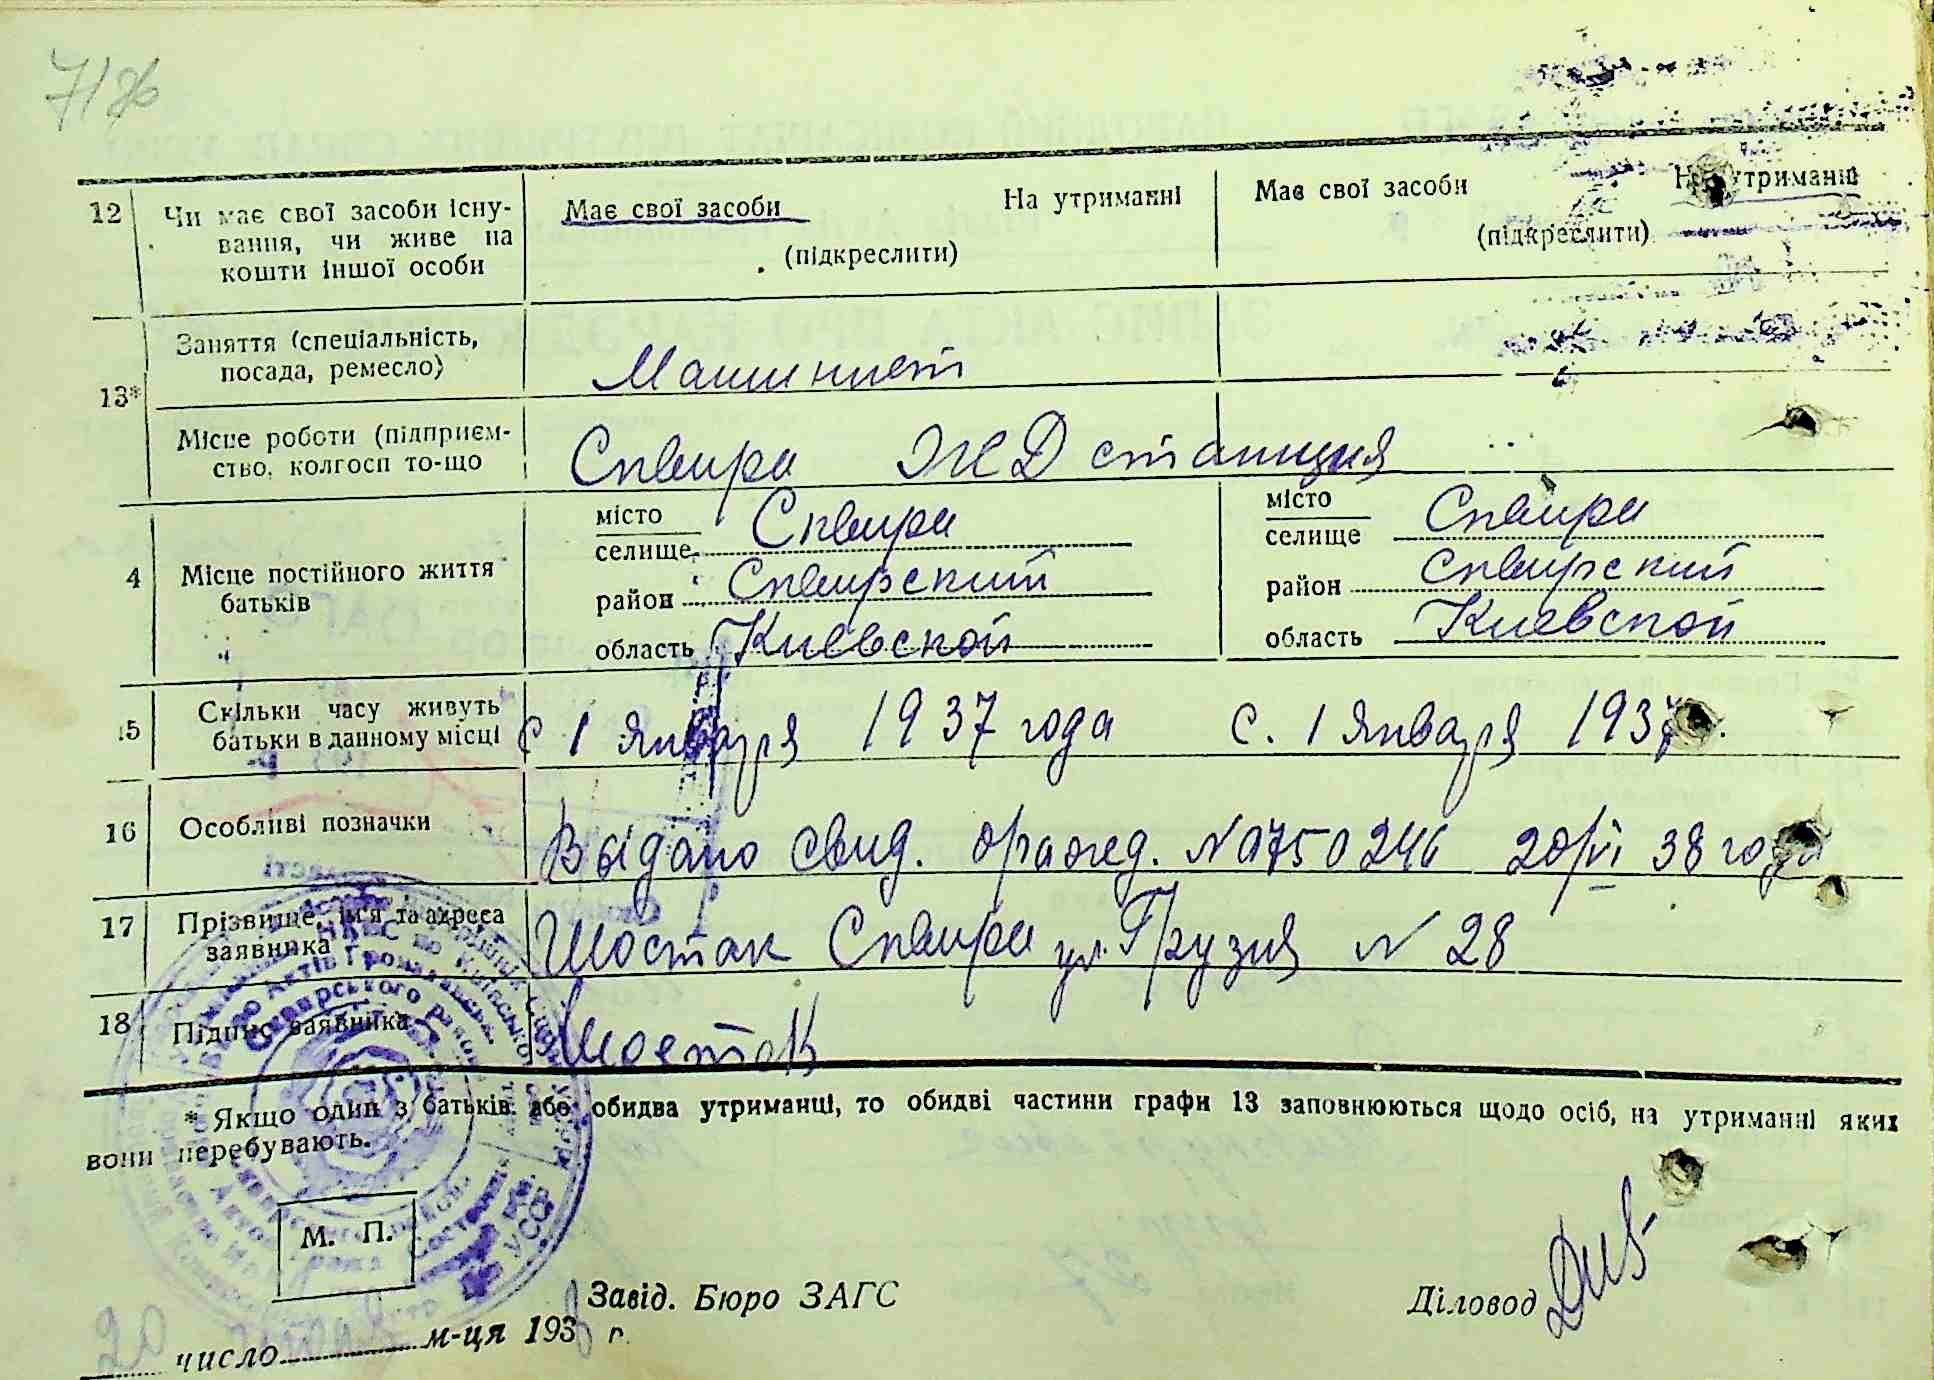 12 Чи має свої засоби існу-
вання, чи живе на
кошти іншої особи
Має свої засоби На утриманні
(підкреслити)
Має свої засоби На утриманні
(підкреслити)
13*
Заняття (спеціальність,
посада, ремесло)
Машинист
Місце роботи (підприєм-
ство, колгосп то-що
Сквира ЖД станция
4 Місце постійного життя
батьків
місто
селище Сквира
район Сквирский
область Киевской
місто
селище Сквира
район Сквирский
область Киевской
15 Скільки часу живуть
батьки в данному місці
С 1 Января 1937 года
С. 1 Января 1937
16 Особливі позначки
Выдано свид. о рожд. N 0750246 20/VI 38 года
17 Прізвище, ім'я та адреса
заявника
Шостак Сквира ул. Грузия N 28
18 Підпис заявника
Шостак
* Якщо один з батьків або обидва утриманці, то обидві частини графи 13 заповнюються щодо осіб, на утриманні яких
вони перебувають.
М. П.
Завід. Бюро ЗАГС
Діловод
20 число м-ця 1938 г.